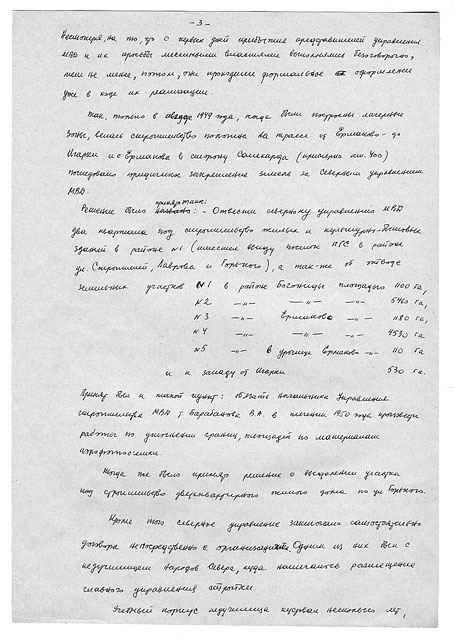 - 3 -
Несмотря, на то, что с первых дней прибытия представителей управления
МВД и их просьбы местными властями выполнялись безоговорочно,
тем не менее, потом, они проходили формальное оформление
уже в ходе их реализации.
Так, только в 1949 года, когда были построены лагерные
зоны, велась строительство полотна на трассе из Ермаково - до
Игарки и с Ермаково в сторону Салехарда (примерно км. 400)
последовало юридическое закрепление земель за Северным управлением
МВД.
принято такое:
Решение было : - Отвести северному управлению МВД
два квартала под строительство жилых и культурно-бытовых
зданий в районе №1 (имеется ввиду поселок ПГС в районе
ул. Строителей, Лаврова и Горького), а так-же об отводе
земельных участков №1 в районе площадью 1100 га,
№2 -"- -"- -"- 5460 га,
№3 -"- Ермаково -"- 1180 га,
№4 -"- -"- -"- 4530 га
№5 -"- в урочище Ермаково -"- 110 га
и к западу от Игарки 530 га.
Принят был и такой пункт: обязать начальника Управления
строительства МВД т. Барабанова В.А. в течении 1950 года произвести
работы по уточнении границ, площадей по материалам
аэрофотосъемки.
Тогда же было принято решение о выделении участка
под строительство двенквартирного жилого дома по ул Горького.
Кроме того северное управление заключало самостоятельно
договора непосредственно с организациями. Одним из них был с
медучилищем Народов Севера, куда намечалось размещение
главного управления стройки.
Учебный корпус медучилища пустовал несколько лет,